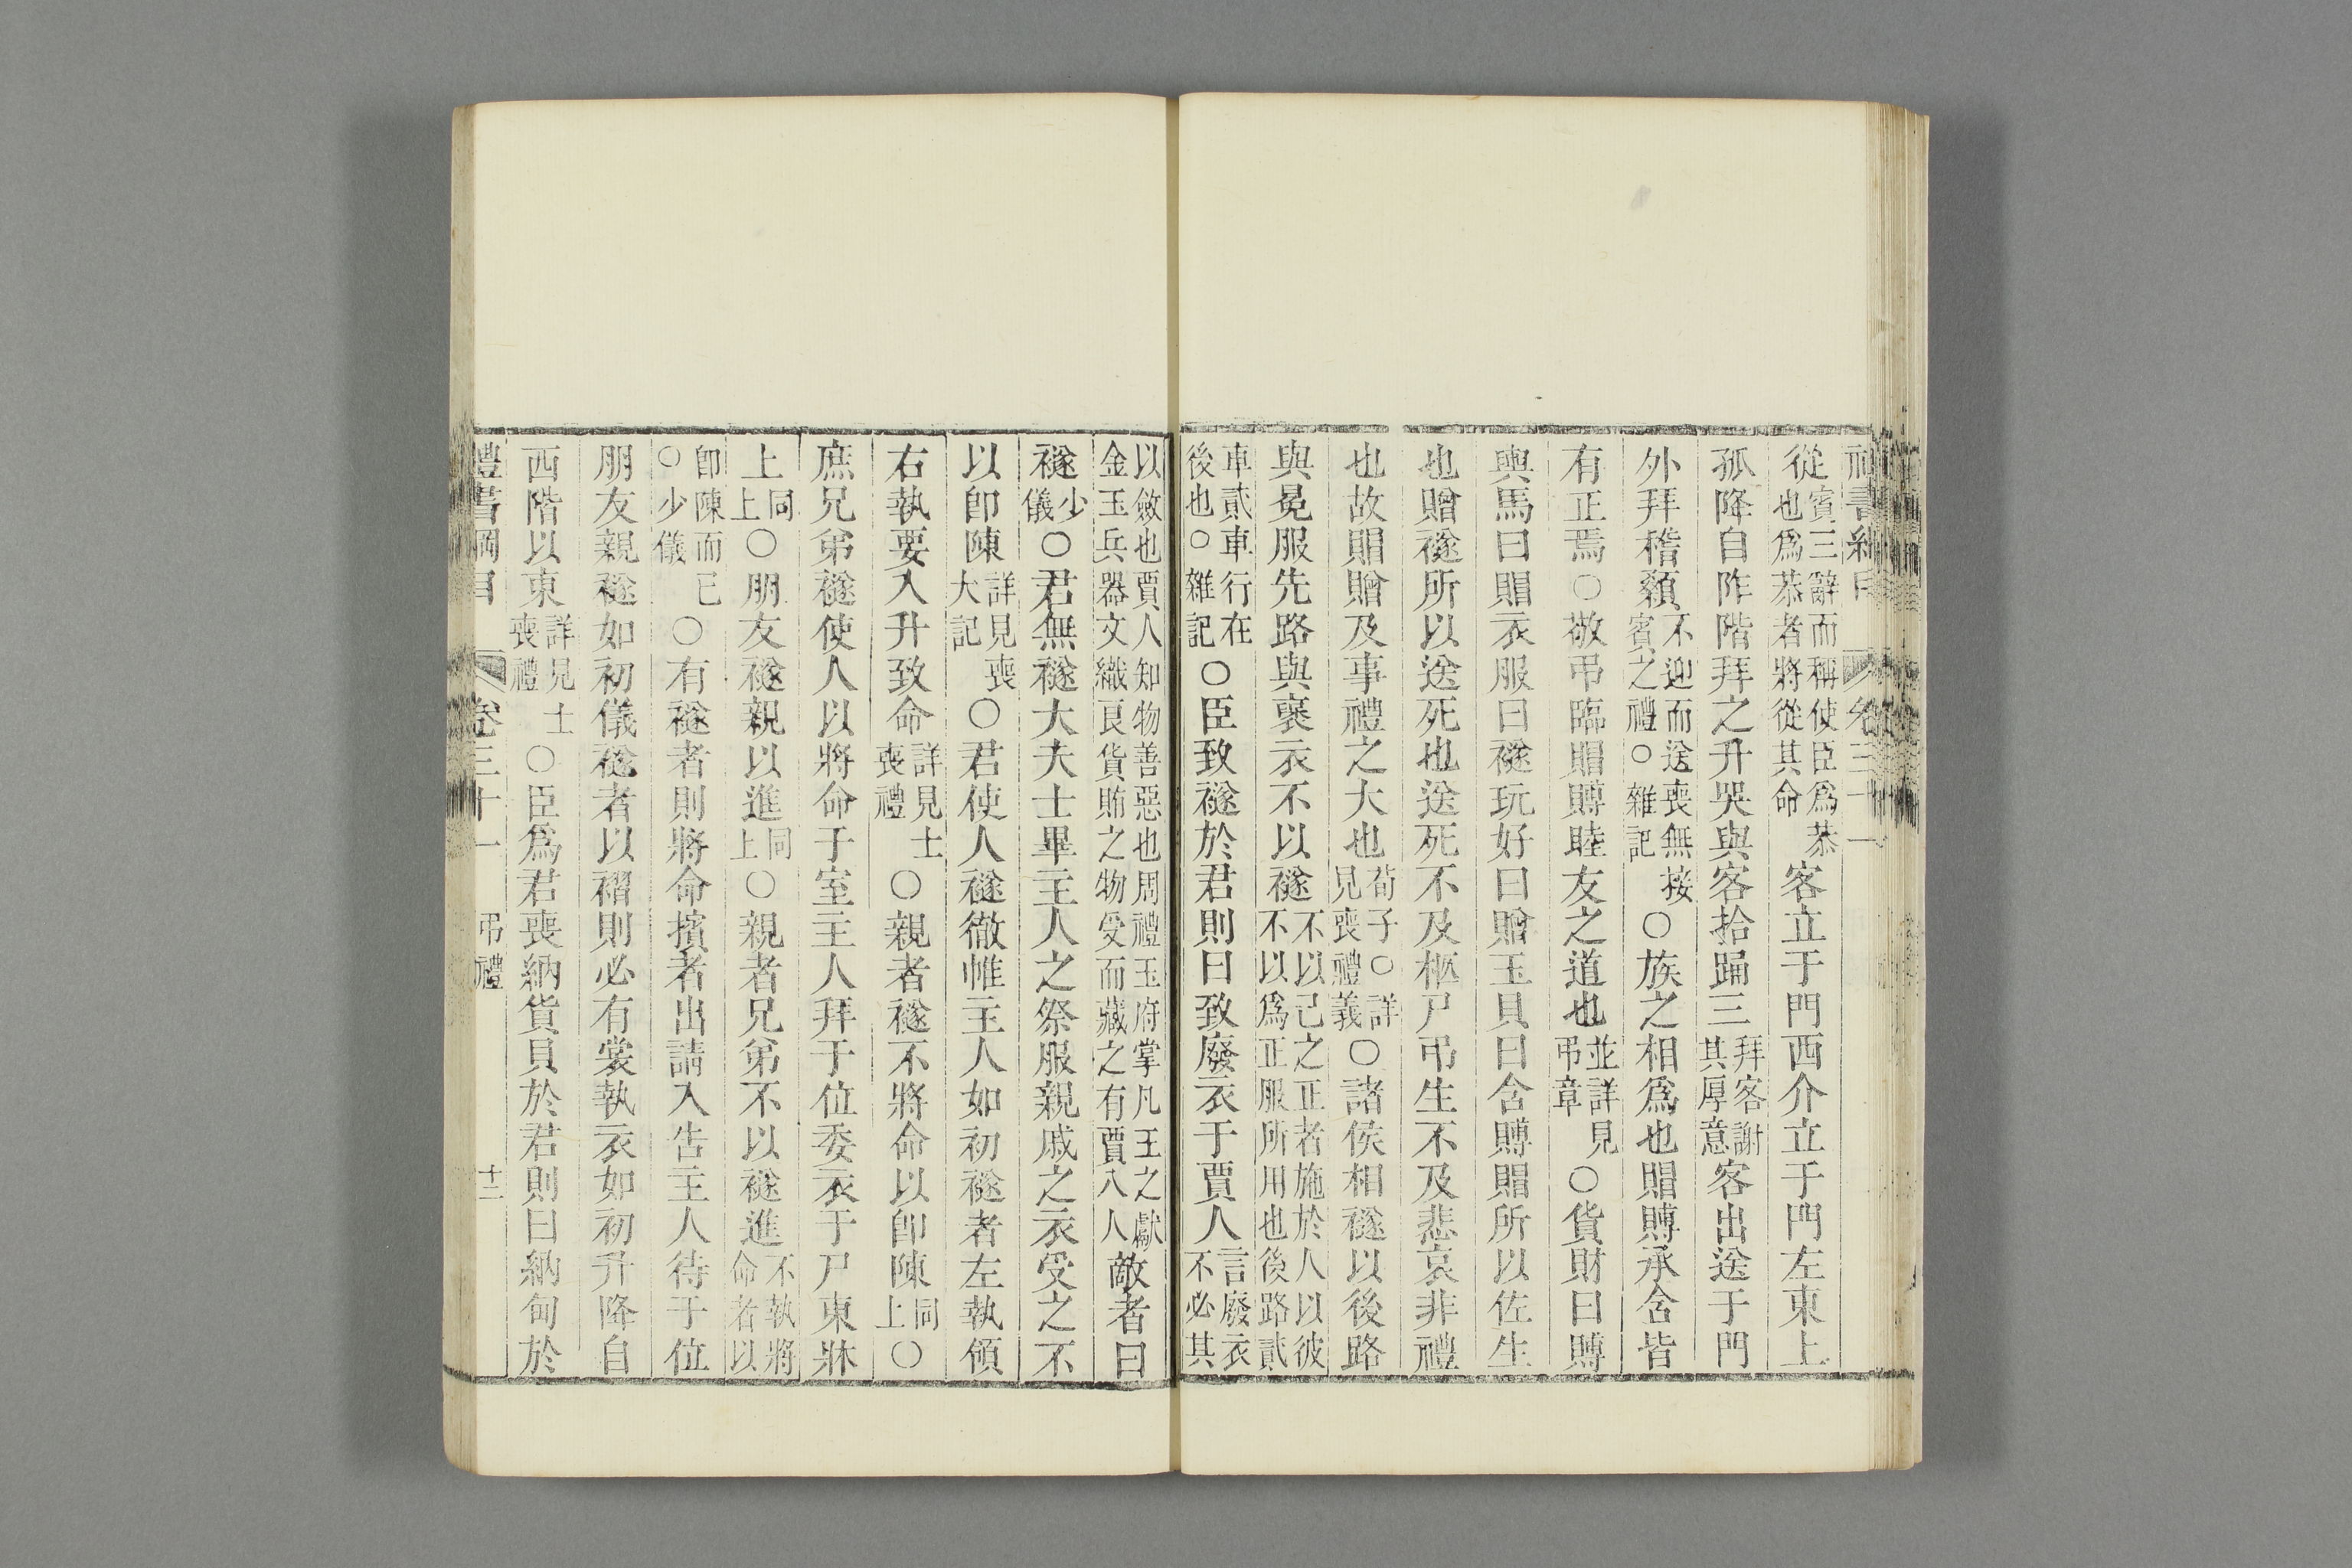 禮書綱目 卷三十一
從賓三辭而稱使臣爲恭也爲恭者將從其命客立于門西介立于門左東上
孤降自阼階拜之升哭與客拾踊三拜客謝其厚意客出送于門
外拜稽顙不迎而送喪無接賓之禮○雜記○族之相爲也賵賻承含皆
有正焉○敬弔臨賵賻睦友之道也並詳見弔章○貨財曰賻
輿馬曰賵衣服曰襚玩好曰贈玉貝曰含賻賵所以佐生
也贈襚所以送死也送死不及柩尸弔生不及悲哀非禮
也故賵贈及事禮之大也荀子○詳見喪禮義○諸侯相襚以後路
與冕服先路與襃衣不以襚不以己之正者施於人以彼不以爲正服所用也後路貳
車貳車行在後也○雜記○臣致襚於君則曰致廢衣于賈人言廢衣不必其
以斂也賈人知物善惡也周禮玉府掌凡王之獻金玉兵器文織良貨賄之物受而藏之有賈八人敵者曰
襚少儀○君無襚大夫士畢主人之祭服親戚之衣受之不
以卽陳詳見喪大記○君使人襚徹帷主人如初襚者左執領
右執要入升致命詳見士喪禮○親者襚不將命以卽陳同上○
庶兄弟襚使人以將命于室主人拜于位委衣于尸東牀
上同上○朋友襚親以進同上○親者兄弟不以襚進不執將命者以
卽陳而已○少儀○有襚者則將命擯者出請入告主人待于位
朋友親襚如初儀襚者以褶則必有裳執衣如初升降自
西階以東詳見士喪禮○臣爲君喪納貨貝於君則曰納甸於
禮書綱目 卷三十一 弔禮 十二